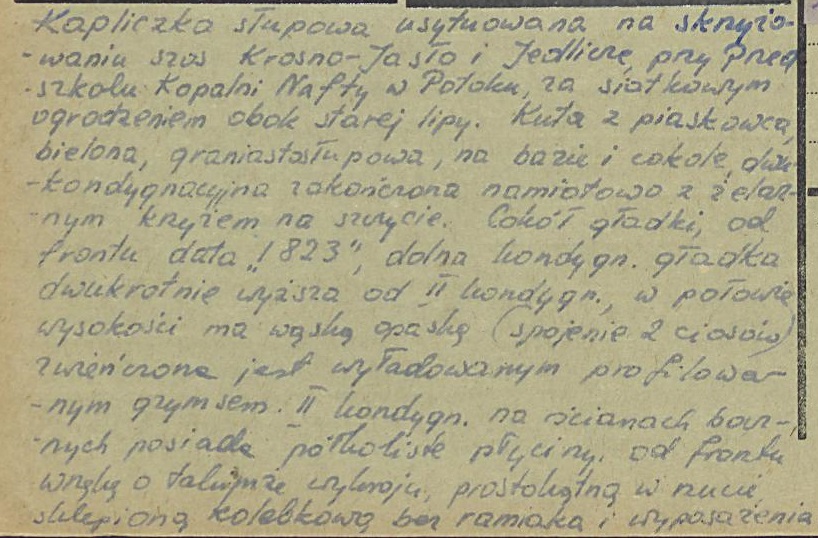 Kapliczka słupowa usytuowana na skrzyżo-
-waniu szos Krosno-Jasło i Jedlicze, przy Przed
-szkolu Kopalni Nafty w Potoku, za siatkowym
ogrodzeniem obok starej lipy. Kuta z piaskowca,
bielona, graniastosłupowa, na bazie i cokole, dwu-
-kondygnacyjna zakończona namiotowo z żelaz-
-nym krzyżem na szczycie. Cokół gładki, od
frontu data "1823", dolna kondygn. gładka
dwukrotnie wyższa od II kondygn., w połowie
wysokości ma wąską opaskę (spojenie 2 ciosów)
zwieńczona jest wyładowanym profilowa-
-nym gzymsem. II kondygn. na ścianach bocz-
-nych posiada półkoliste płyciny, od frontu
wnękę o takimże wykroju, prostokątną w rzucie,
sklepioną kolebkową bez ramiaka i wyposażenia